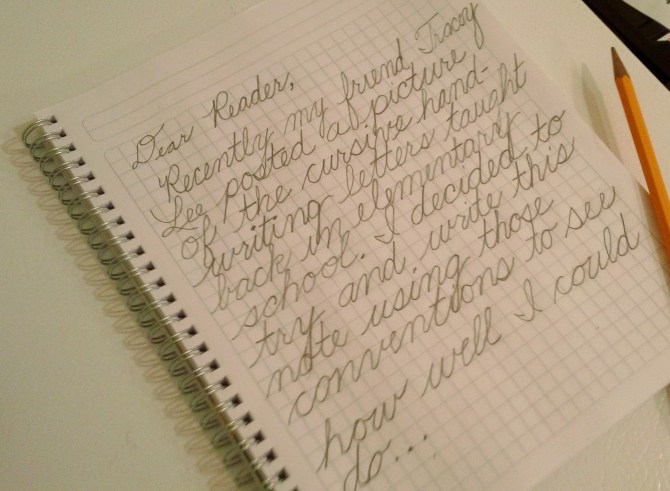 Dear Reader,
Recently my friend Tracey
Lee posted a picture
of the cursive hand-
writing letters taught
back in elementary
school. I decided to
try and write this
note using those
conventions to see
how well I could
do...